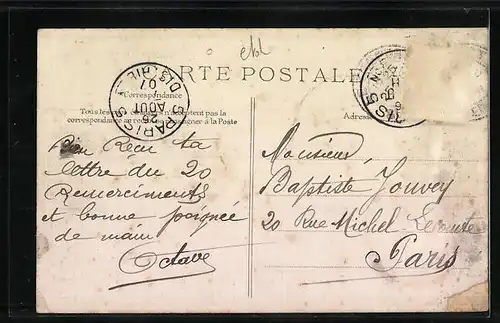 CARTE POSTALE
Correspondance
Tous les
correspondance au recto
à la Poste
Adresse
PARIS 5
DISTRIB
26
AOUT
07
Bien Reçu ta
lettre du 20
Remerciments
et bonne poignée
de main
Octave
Monsieur
Baptiste Jouvey
20 Rue Michel Lecomte
Paris